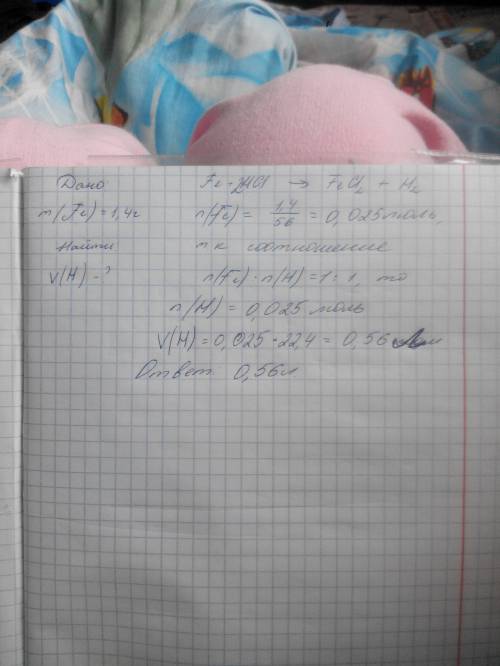 Дано Fe + 2HCl → FeCl2 + H2
m(Fe) = 1,4г n(Fe) = 1,4/56 = 0,025 моль,
Найти тк соотношение
V(H) - ? n(Fe) : n(H) = 1 : 1, то
n(H) = 0,025 моль
V(H) = 0,025 · 22,4 = 0,56 л
Ответ 0,56л